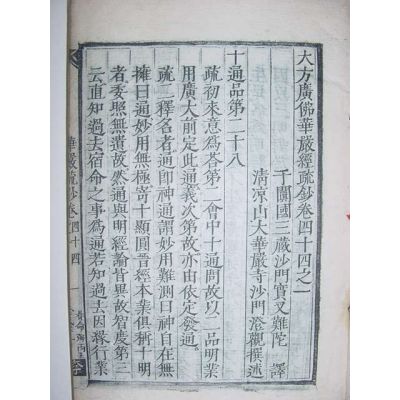 大方廣佛華嚴經疏鈔卷四十四之一
于闐國三藏沙門實叉難陀 譯
清涼山大華嚴寺沙門 澄觀 撰述
十通品第二十八
疏初來意爲荅第二會中十通問故以一品明業
用廣大前定此通義次第故亦由依定發通
疏二釋名者通即神通謂妙用難測曰神自在無
擁曰通妙用無極寄十顯圓晉經本業俱稱十明
者委照無遺故然通與明經論皆異故智度第三
云直知過去宿命之事爲通若知過去因緣行業
華嚴疏鈔卷四十四 一